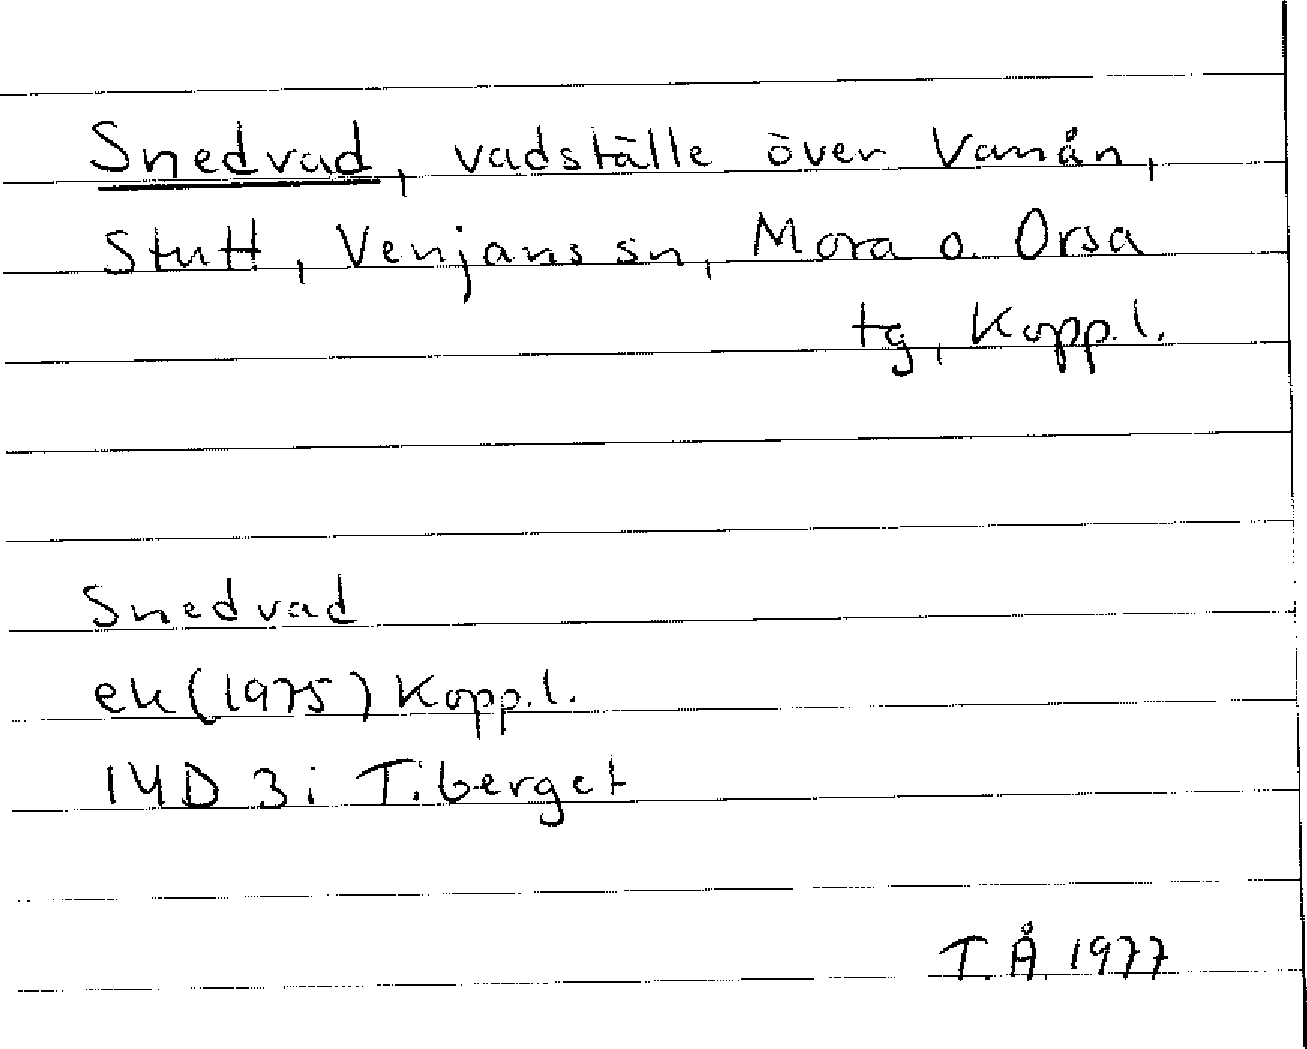 Snedvad, vadställe över Vanån,
Stutt, Venjans sn, Mora o. Orsa
tg, Kopp.l.
Snedvad
ek (1975) Kopp.l.
14D 3i Tiberget
T.Å. 1977